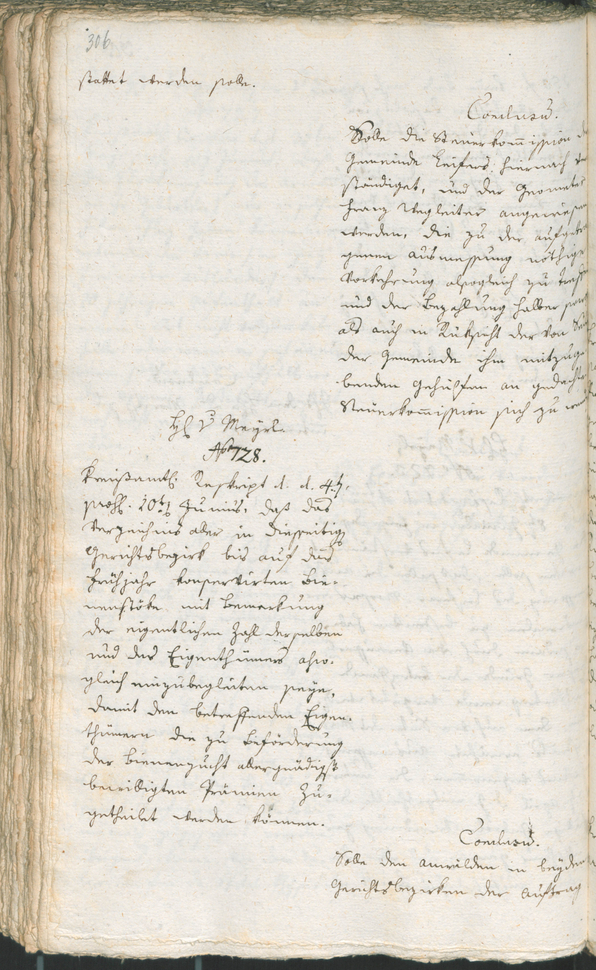 306
stattet werden solle.
Conclusum.
Solle die Steuerkommission der
Gemeinde Leifers hiernach ver
ständiget, und der Geometer
Franz Wegleiter angewiesen
werden, die zu der aufgetra
genen Ausmessung nöthige
Vorkehrung alsogleich zu treffen
und der Bezahlung halber sowohl
als auch in Rüksicht der von Seite
der Gemeinde ihm mitzuge
benden Gehülfen an gedachte
Steuerkommission sich zu wenden
H v Mayrl.
No 728.
Kreisamtl. Reskript d. d. 4t
präs. 20t Junius, daß das
Verzeichnis aller in diesseitig
Gerichtsbezirk bis auf das
Frühjahr konservirten Bie-
nenstöke mit Bemerkung
der eigentlichen Zahl derselben
und des Eigenthümers also-
gleich einzubegleiten seye,
damit den betreffenden Eigen-
thümern die zu Beförderung
der Bienenzucht allergnädigst
bewilligten Prämien zu-
getheilet werden können.
Conclusum.
Solle den Anwälden in beyden
Gerichtsbezirken der Auftrag